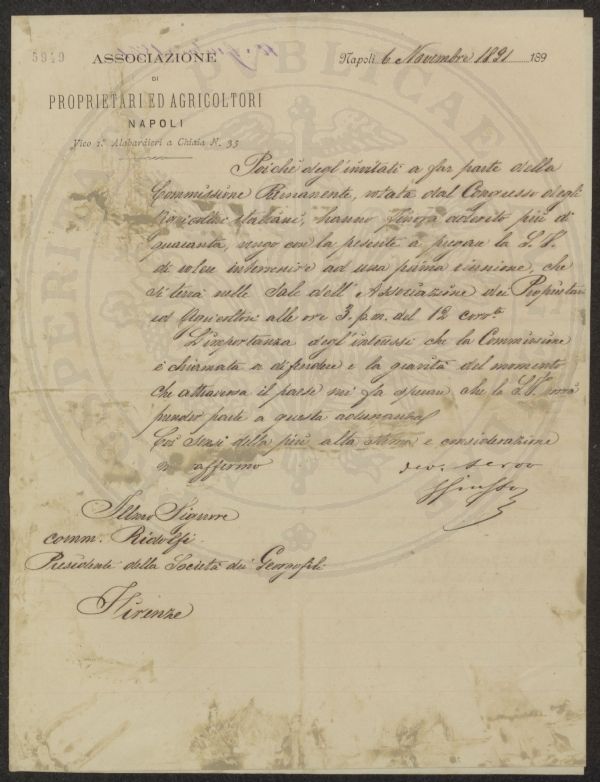 5949
ASSOCIAZIONE
DI
PROPRIETARI ED AGRICOLTORI
NAPOLI
Vico 1.º Alabardieri a Chiaia N. 35
Napoli 6 Novembre 1891 189
Poichè degl'invitati a far parte della
Commissione Permanente, votata dal Congresso degli
Agricoltori Italiani, hanno finora aderito più di
quaranta, vengo con la presente a pregare la S. V.
di volere intervenire ad una prima riunione, che
si terrà nelle Sale dell'Associazione dei Proprietari
ed Agricoltori alle ore 3. p.m. del 12 corr.te
L'importanza degl'interessi che la Commissione
è chiamata a difendere e la gravità del momento
che attraversa il paese mi fa sperare che la S. V. vorrà
prender parte a questa adunanza
Coi sensi della più alta stima e considerazione
mi affermo
dev. servo
Illmo Signore
comm. Ridolfi
Presidente della Società dei Georgofili
Firenze